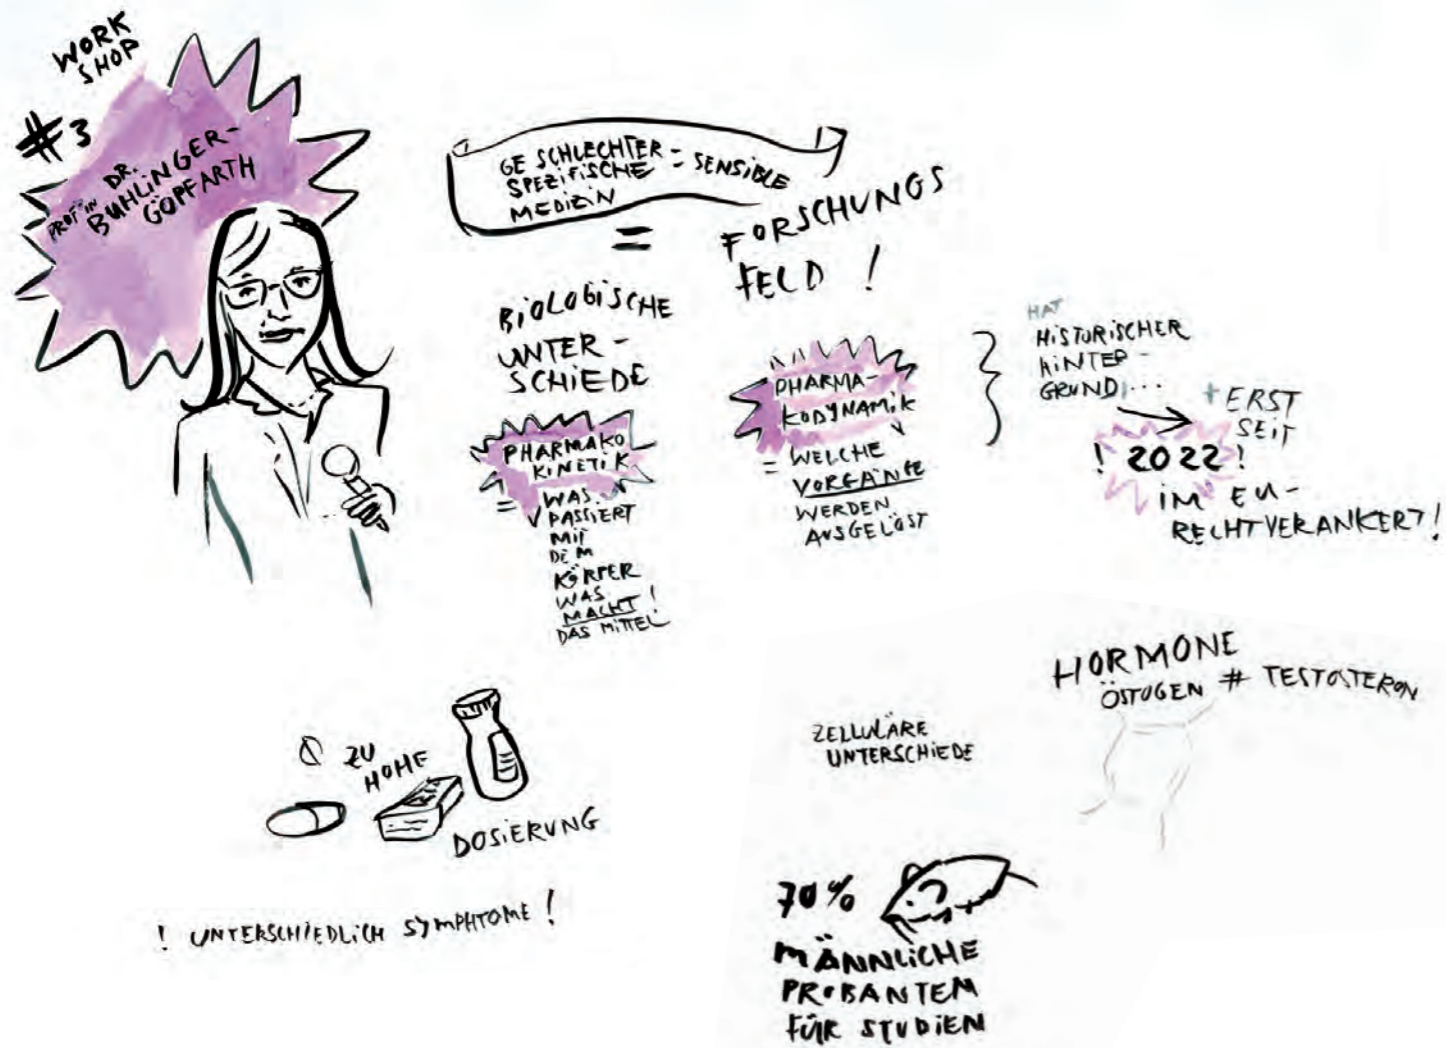 WORK
SHOP
#3
PROF*IN DR.
BUHLINGER-
GÖPFARTH
GE SCHLECHTER = SENSIBLE
SPEZIFISCHE
MEDIZIN
=
FORSCHUNGS
FELD !
BIOLOGISCHE
UNTER-
SCHIEDE
PHARMAKO
KINETIK
= WAS
PASSIERT
MIT
DEM
KÖRPER
WAS
MACHT !
DAS MITTEL
PHARMA-
KODYNAMIK
= WELCHE
VORGÄNGE
WERDEN
AUSGELÖST
HAT
HISTORISCHER
HINTER-
GRUND, ...
+ ERST
SEIT
! 2022 !
IM EU-
RECHT VERANKERT!
HORMONE
ÖSTOGEN # TESTOSTERON
ZELLULÄRE
UNTERSCHIEDE
ZU
HOHE
DOSIERUNG
! UNTERSCHIEDLICH SYMPHTOME !
70%
MÄNNLICHE
PROBANTEN
FÜR STUDIEN